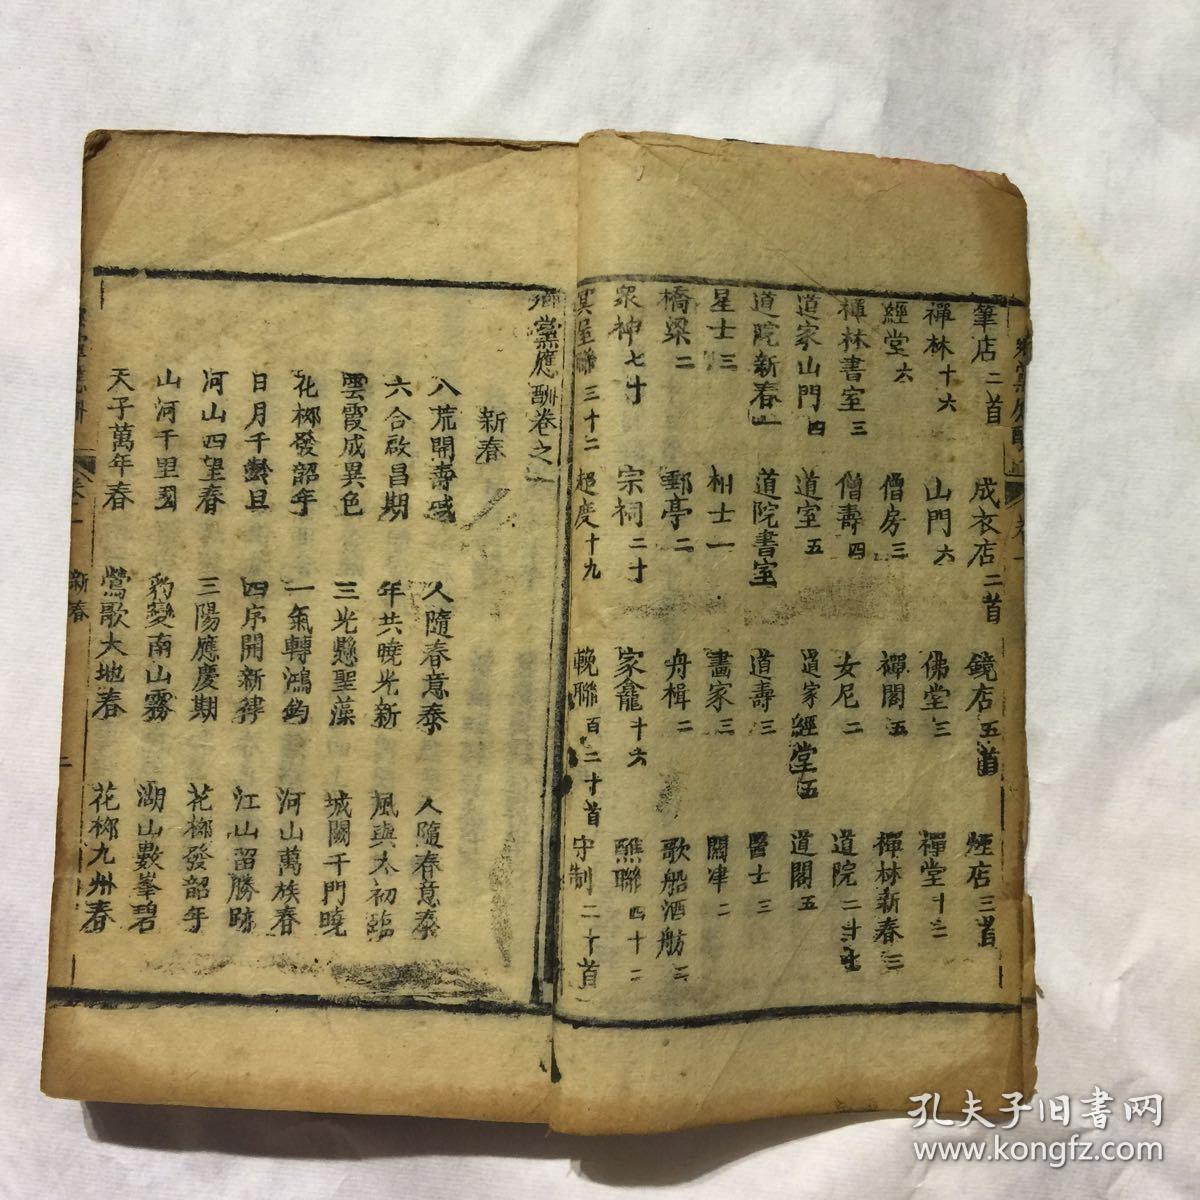 筆店二首 成衣店二首 鏡店五首 烟店三首
禪林十六 山門六 佛堂三 禪堂十二
經堂六 僧房三 禪閣五 禪林新春三
禪林書室三 僧壽四 女尼二 道院二廿七
道家山門四 道室五 道家經堂五 道閣五
道院新春一 道院書室 道壽三 醫士三
星士三 相士一 畫家三 關津二
橋梁二 郵亭二 舟楫二 歌船酒舫二
眾神七寸 宗祠二寸 家龕十六 醮聯四十二
冥屋聯三十二 超度十九 輓聯百二十首 守制二十首
堂應酬卷之一
新春
八荒開壽域 人隨春意泰 人隨春意泰
六合啟昌期 年共曉光新 風與太初臨
雲霞成異色 三光懸聖藻 城闕千門曉
花柳發韶年 一氣轉鴻鈞 河山萬族春
日月千齡旦 四序開新律 江山留勝跡
河山四望春 三陽應慶期 花柳發韶年
山河千里國 豹變南山霧 湖山數峯碧
天子萬年春 鶯歌大地春 花柳九州春
新春
二
孔夫子旧書网
www.kongfz.com